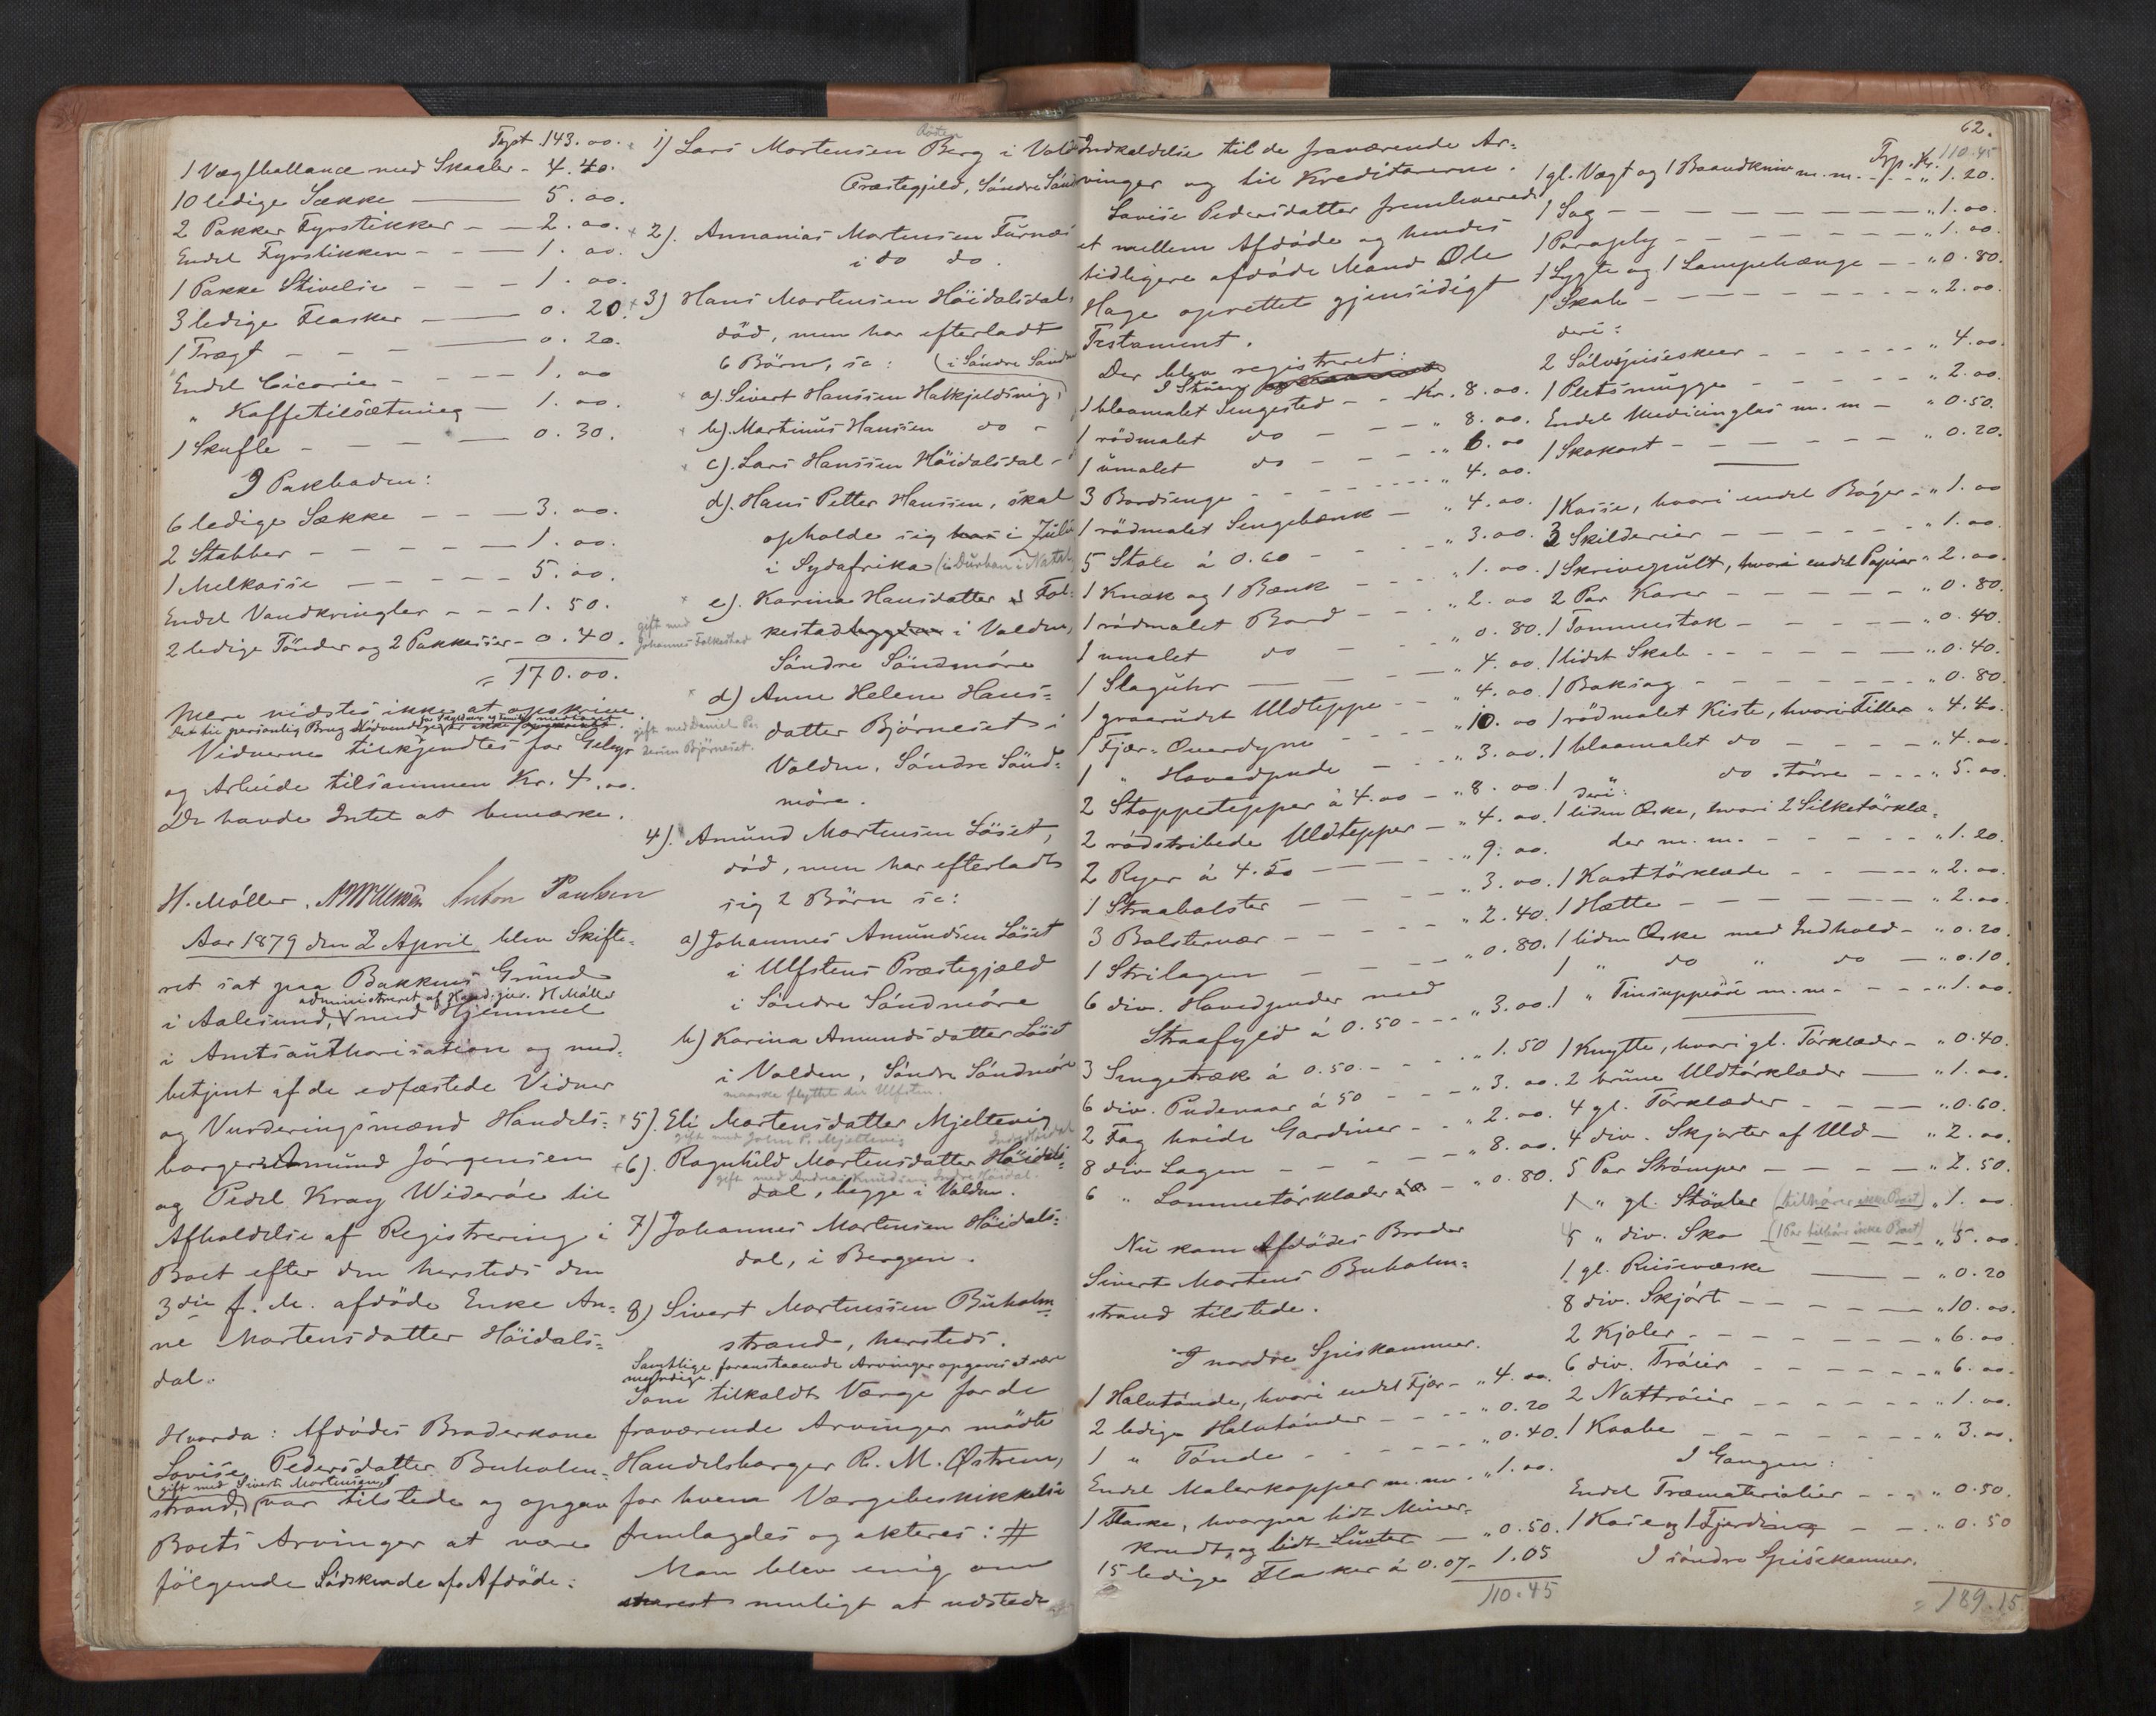 Tpt. 143.00.
1 Vægtballance med Skaaler - 4.40.
10 ledige Sække — 5.00.
2 Pakker Fyrstikker - - 2.00.
Endel Fyrstikker - - 1.00.
1 Pakke Stivelse - - - 1.00.
3 ledige Flasker — 0.20.
1 Tragt - - - 0.20.
Endel Cicorie - - - 1.00
" Kaffetilsætning - 1.00.
1 Skufle - - - 0.30.
I Pakboden:
6 ledige Sække - - - 3.00.
2 Stabber - - - - - 1.00.
1 Melkasse - - - - - 5.00.
Endel Vandkringler - - - 1.50.
2 ledige Tönder og 2 Pakkasser - 0.40.
= 170.00.
Mere vidstes ikke at opskrive.
Det til personlig Brug Nödvendige
Vidnerne tilkjendtes for Gebyr
og Arbeide tilsammen Kr. 4.00.
De havde Intet at bemærke.
H. Möller. Anton Paulsen
Aar 1879 den 2 April blev Skifte-
ret sat paa Bakkens Grund
administreret af Kand. jur. H Möller
i Aalesund, med Hjemmel
i Amtsauthorisation og med-
betjent af de edfæstede Vidner
og Vurderingsmænd Handels-
borgere Amund Jörgensen
og Pedel Krag Wideröe til
Afholdelse af Registrering i
Boet efter den hersteds den
3die f. M. afdöde Enke An-
ne Martensdatter Höidals-
dal.
Hvorda: Afdödes Broderkone
Lovise Pedersdatter Buholm-
(gift med Sivert Mortensen)
strand, var tilstede og opgav
Boets Arvinger at være
fölgende Södskende af Afdöde:
1) Lars Mortensen Berg i Volds
Præstegjeld, Söndre Sönd
2). Annanias Mortensen Furnæs
i do do.
3) Hans Mortensen Höidalsdal,
död, men har efterladt
6 Börn, sc: (i Söndre Söndm
a). Sivert Hanssen Halkjeldsvig,
b). Martinus Hanssen do -
c). Lars Hanssen Höidalsdal -
d). Hans Petter Hanssen, skal
opholde sig hos i Zulu
i Sydafrika (i Durban i Natal)
e). Karine Hansdatter i Fol-
gift med
Johannes Folkestad
kestadbygden i Volden,
Söndre Söndmöre
d) Anne Helene Hans-
gift med Daniel Pe
dersen Björneset.
datter Björneset i
Volden, Söndre Sönd-
möre.
4). Amund Mortensen Löset,
död, men har efterladt
sig 2 Börn sc:
a) Johannes Amundsen Löset
i Ulfstens Præstegjæld
i Söndre Söndmöre
b) Karina Amundsdatter Löset
i Volden, Söndre Söndmöre
maaske flyttet til Ulfsten.
5). Eli Mortensdatter Mjeltevig
gift med John P. Mjeltevig
6). Ragnhild Mortensdatter Höidals-
gift med Andreas Knudsen Indre Höidal.
dal, begge i Volden.
7) Johannes Mortensen Höidals-
dal, i Bergen.
8) Sivert Mortenssen Buholm-
strand, hersteds.
Samtlige foranstaaende Arvinger opgaves at være
myndige.
Som tilkaldt Værge for de
fraværende Arvinger mödte
Handelsborger R. M. Østrem,
for hvem Værgebeskikkelse
fremlagdes og akteres: #
Man blev enig om
snarest muligt at udstede
62.
Indkaldelse til de fraværende Ar-
vinger og til Kreditorerne.
Lovise Pedersdatter fremleverede
et mellem Afdöde og hendes
tidligere afdöde Mand Ole
Hage oprettet gjensidigt
Testament.
Der blev registreret:
I Stuen
1 blaamalet Sengested - - Kr. 8.00.
1 rödmalet do - - - " 8.00.
1 umalet do - - - " 6.00
3 Bordsenge - - - - " 4.00.
1 rödmalet Sengebænk - " 4.00.
5 Stole à 0.60 - - - " 3.00.
1 Knak og 1 Bænk - - - " 1.00.
1 rödmalet Bord - - - " 2.00
1 umalet do - - - " 0.80.
1 Slaguhr - - - - " 4.00.
1 graarudet Uldteppe - - " 4.00.
1 Fjær-Overdyne - - - " 10.00
1 " Hovedpude - - " 3.00.
2 Stoppetepper à 4.00 - " 8.00.
2 rödstribede Uldtepper - " 4.00.
2 Ryer à 4.50 - - - " 9.00.
1 Straabolster - - - - " 3.00.
3 Bolstervær - - - - " 2.40.
1 Strilagen - - - - " 0.80.
6 div. Hovedpuder med
Straafyld à 0.50 - - - " 3.00.
3 Sengetræk à 0.50. - - - " 1.50
6 div. Pudevaar à 50 - - - " 3.00.
2 Fag hvide Gardiner - - " 2.00.
8 div Lagen - - - - " 8.00.
6 " Lommetörklæder - " 0.80.
Nu kom Afdödes Broder
Sivert Mortens Buholm-
strand tilstede.
I nordre Spiskammer.
1 Halvtönde, hvori endel Fjær - " 4.00.
2 ledige Halvtönder - - - " 0.20
1 " Tönde - - - - " 0.40.
Endel Malerkopper m.m. - " 1.00.
1 Flaske, hvorpaa lidt Miner-
krudt, og lidt Lunter - " 0.50.
15 ledige Flasker à 0.07 - 1.05
110.45
Trp. Kr. 110.45
1 gl. Vægt og 1 Baandkniv m.m. - " 1.20.
1 Sag - - - - - - " 1.00.
1 Paraply - - - - - " 1.00.
1 Lygte og 1 Lampehænge - - " 0.80.
1 Skab - - - - - - " 2.00.
deri:
2 Sölvspiseskeer - - - - " 4.00.
1 Pletsmugge - - - - " 2.00.
Endel Medicinglas m.m - " 0.50.
1 Skokost - - - - - " 0.20.
1 Kasse, hvori endel Böger - " 1.00
3 Skilderier - - - - - " 1.00.
1 Skrivepult, hvori endel Papirer " 2.00.
2 Par Karer - - - - " 0.80.
1 Tommestok - - - - " 0.40.
1 lidet Skab - - - - " 0.40.
1 Baksag - - - - - " 0.80.
1 rödmalet Kiste, hvori Filler " 4.40.
1 blaamalet do - - - - " 4.00.
1 do större - - - " 5.00.
deri:
1 liden Æske, hvori 2 Silketörklæ-
der m.m. - - - - " 1.20.
1 Kasttörklæde - - - - " 2.00.
1 Hætte - - - - - " 2.00.
1 liden Æske med Indhold - " 0.20.
1 " do " do - " 0.10.
1 " Tinsuppeöse m.m. - - " 1.00.
1 Knytte, hvori gl. Törklæder - " 0.40.
2 brune Uldtörklæder - " 1.00.
4 gl. Törklæder - - - " 0.60.
4 div. Skjorter af Uld - " 2.00.
5 Par Strömper - - - " 2.50.
1 " gl. Stövler (tilhörer ikke Boet) " 1.00
5 " div. Sko (1 Par tilhör ikke Boet) " 5.00.
1 gl. Reisevæske - - " 0.20
8 div. Skjört - - - - " 10.00.
2 Kjoler - - - - - " 6.00
6 div. Tröier - - - - " 6.00.
2 Nattröier - - - - " 1.00.
1 Kaabe - - - - - " 3.00.
I Gangen:
Endel Træmaterialier - - - " 0.50.
1 Kasse og 1 Fjerding - - " 0.50
I söndre Spisekammer.
= 189.15